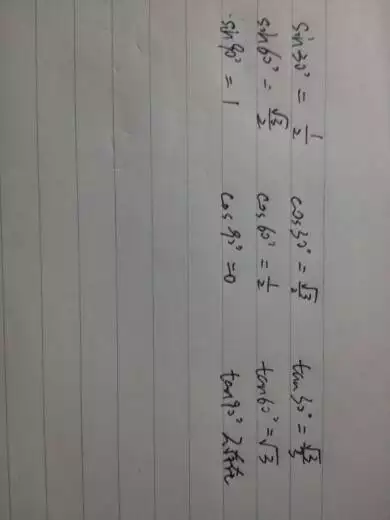 sin30° = 1/2 cos30° = √3/2 tan30° = √3/3
sin60° = √3/2 cos60° = 1/2 tan60° = √3
sin90° = 1 cos90° = 0 tan90° 不存在